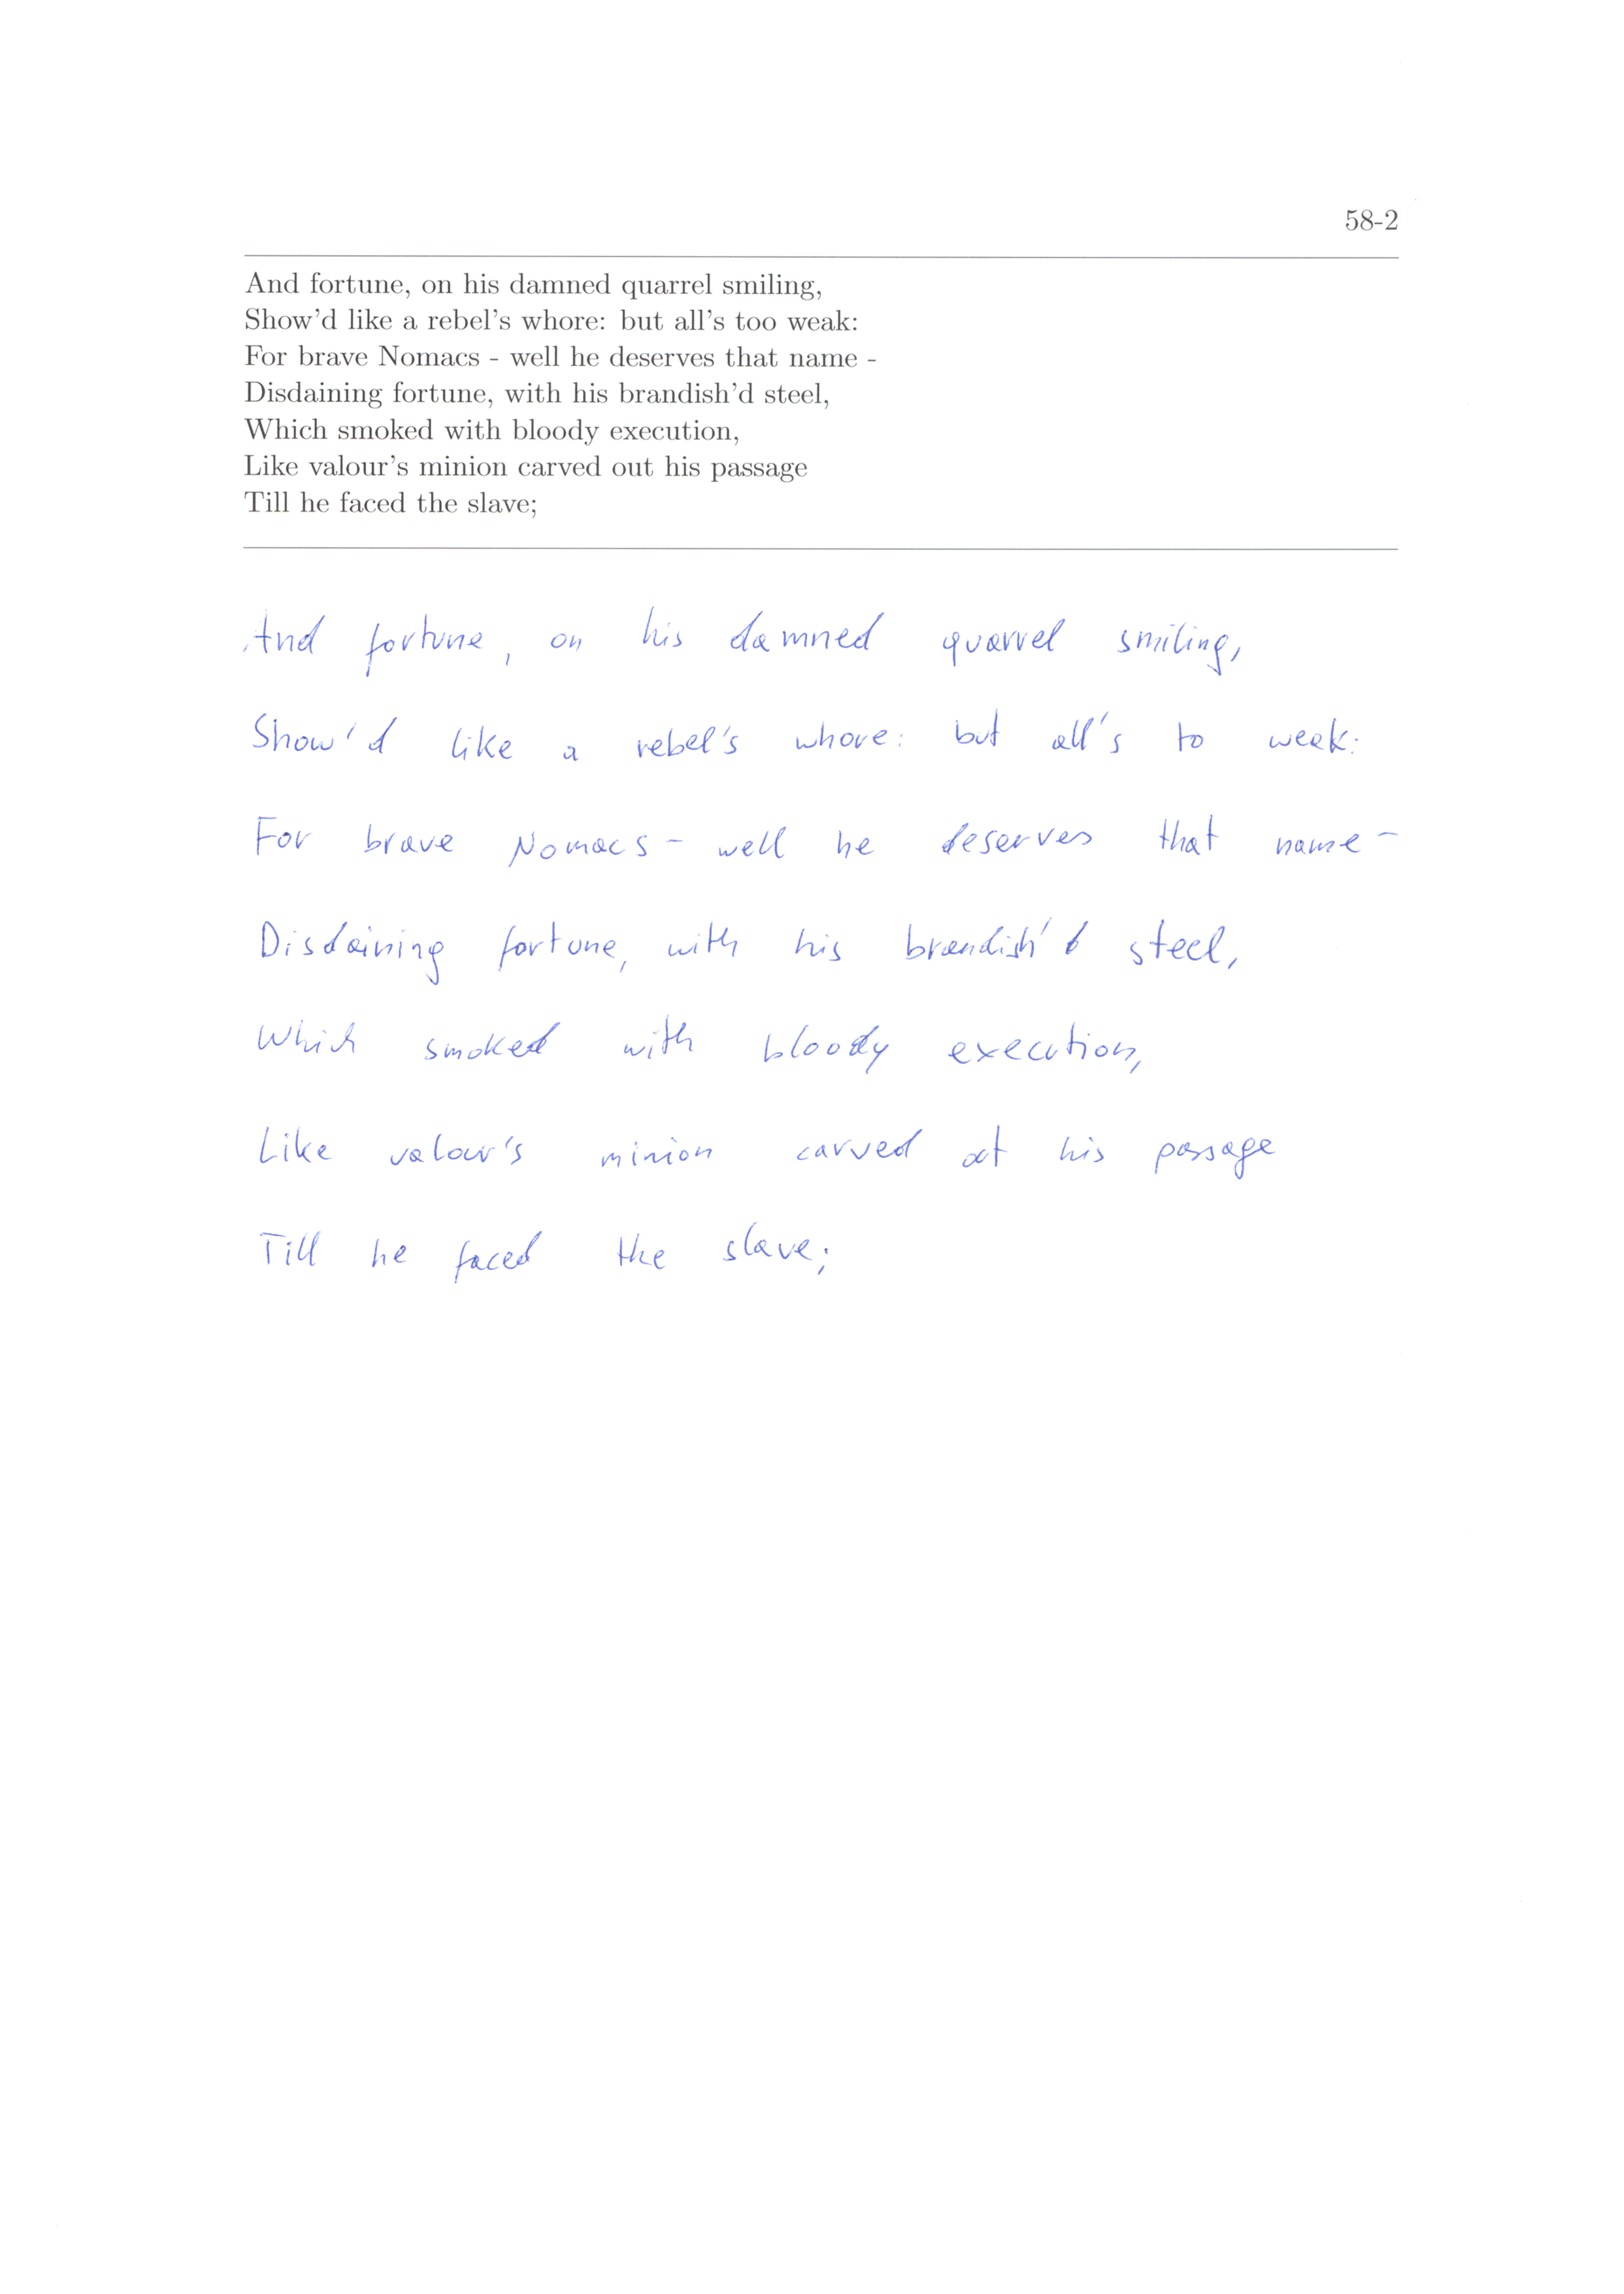 58-2
And fortune, on his damned quarrel smiling,
Show'd like a rebel's whore: but all's too weak:
For brave Nomacs - well he deserves that name -
Disdaining fortune, with his brandish'd steel,
Which smoked with bloody execution,
Like valour's minion carved out his passage
Till he faced the slave;
And fortune, on his damned quarrel smiling,
Show'd like a rebel's whore: but all's to weak:
For brave Nomacs - well he deserves that name -
Disdaining fortune, with his brandish'd steel,
Which smoked with bloody execution,
Like valour's minion carved out his passage
Till he faced the slave;